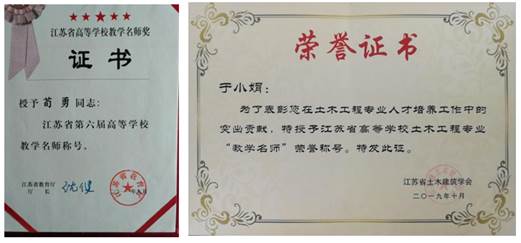 江苏省高等学校教学名师奖
证书
授予 荀勇 同志：
江苏省第六届高等学校
教学名师称号。
江苏省教育厅
厅长
沈健
荣誉证书
于小娟：
为了表彰您在土木工程专业人才培养工作中的
突出贡献，特授予江苏省高等学校土木工程专业
“教学名师”荣誉称号。特发此证。
江苏省土木建筑学会
二〇一九年十月